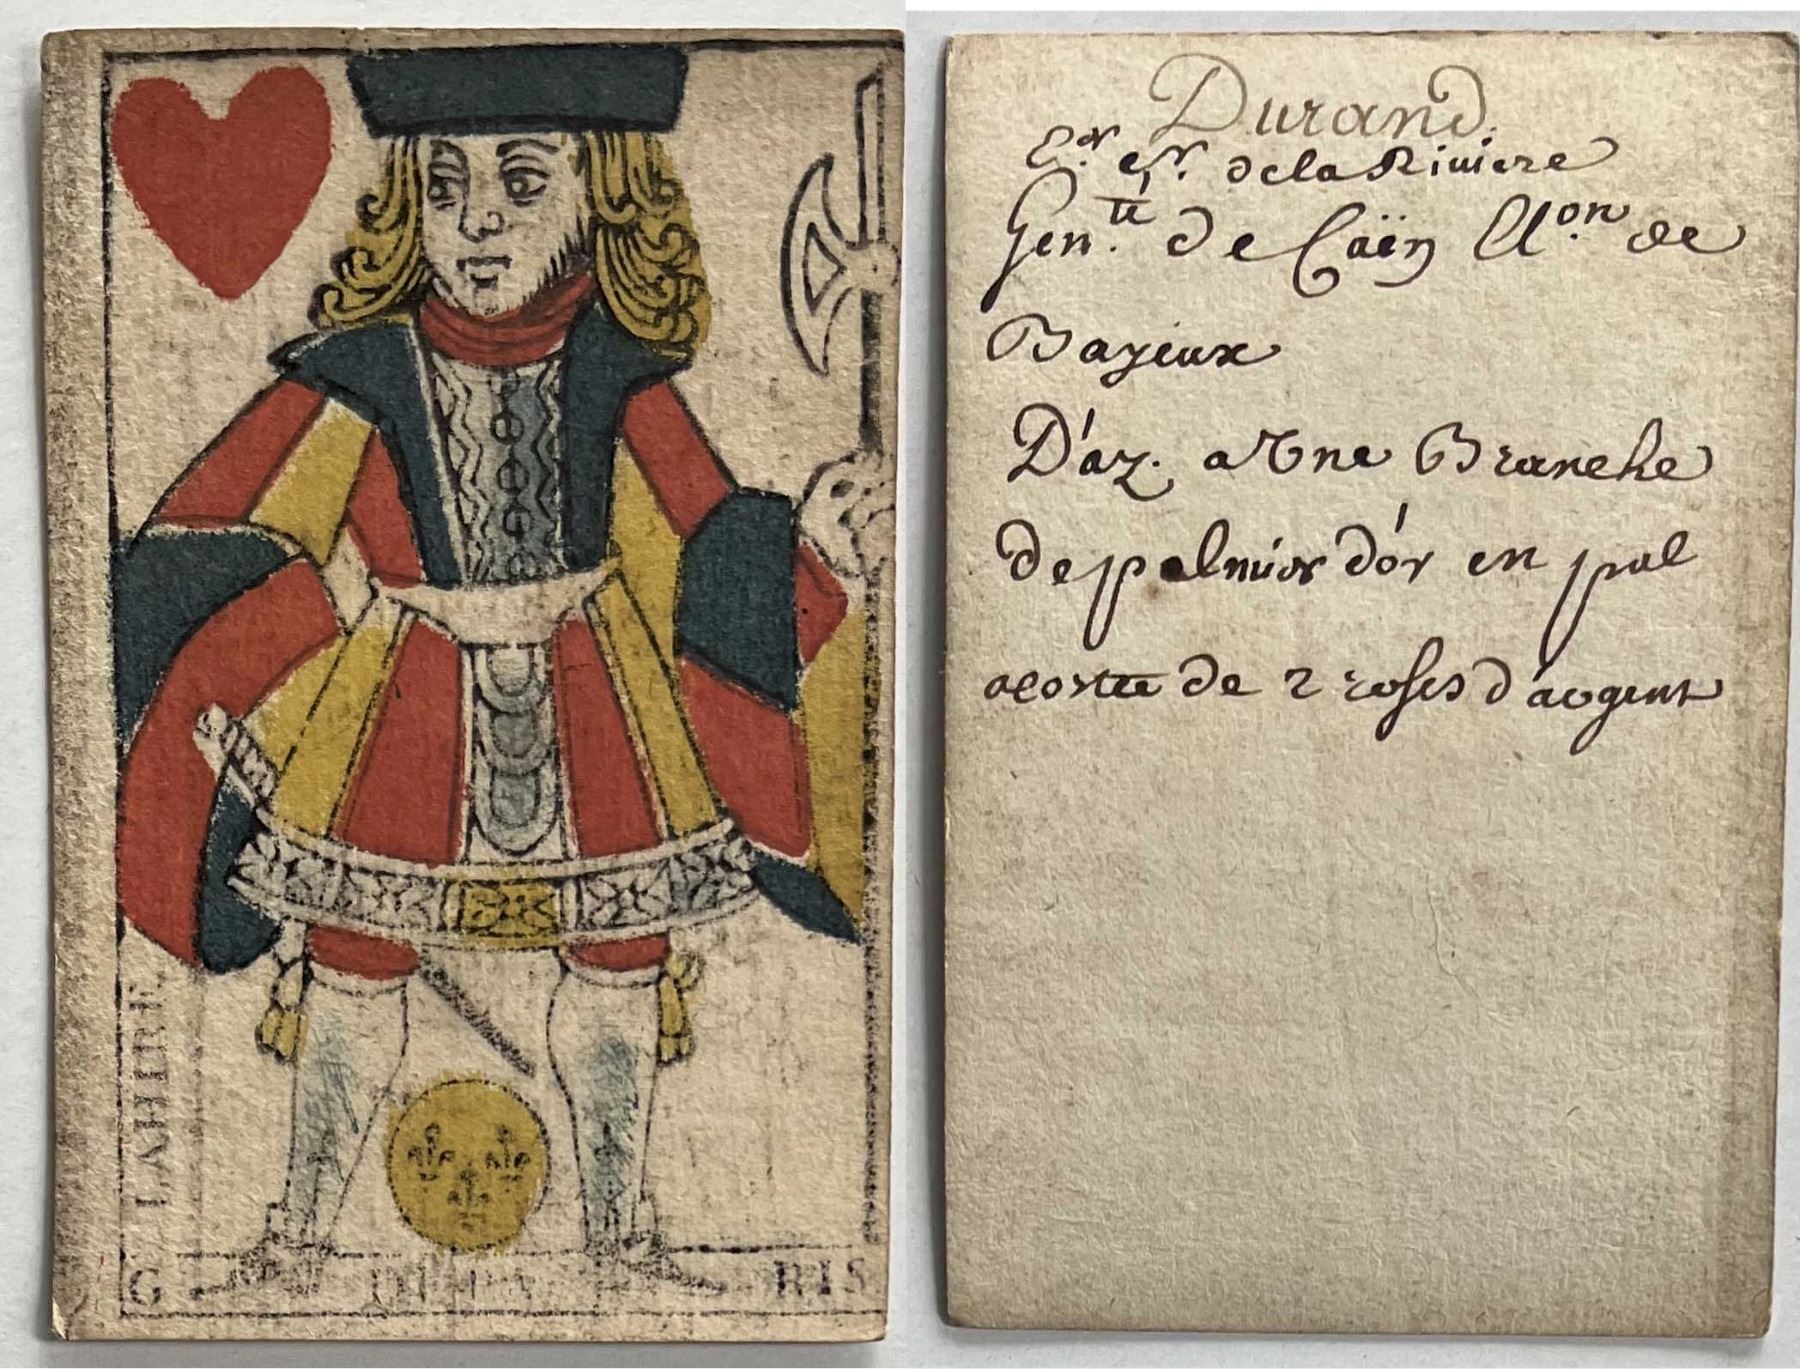 LAHIRE
G DE PA RIS
Durand
E.r S.r dela Riuiere
Gen.té de Caën El.on de
Bayeux
D'az. a Vne Branche
de palmier d'or en pal
acostée de 2 roses d'argent